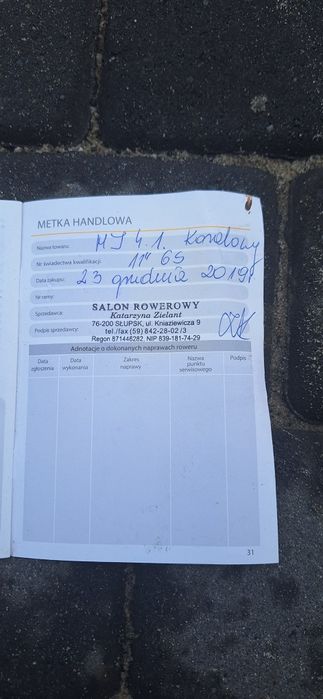 METKA HANDLOWA
Nazwa towaru: MJ 4.1. Koralowy
Nr świadectwa kwalifikacji: 11" 65
Data zakupu: 23 grudnia 2019r
Nr ramy:
SALON ROWEROWY
Sprzedawca: Katarzyna Zielant
76-200 SŁUPSK, ul. Kniaziewicza 9
Podpis sprzedawcy: tel./fax (59) 842-28-02 /3
Regon 871446282, NIP 839-181-74-29
Adnotacje o dokonanych naprawach roweru
Data zgłoszenia
Data wykonania
Zakres naprawy
Nazwa punktu serwisowego
Podpis
31